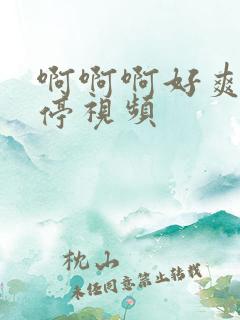 啊啊啊好爽
停視頻
枕山
未经同意禁止转载